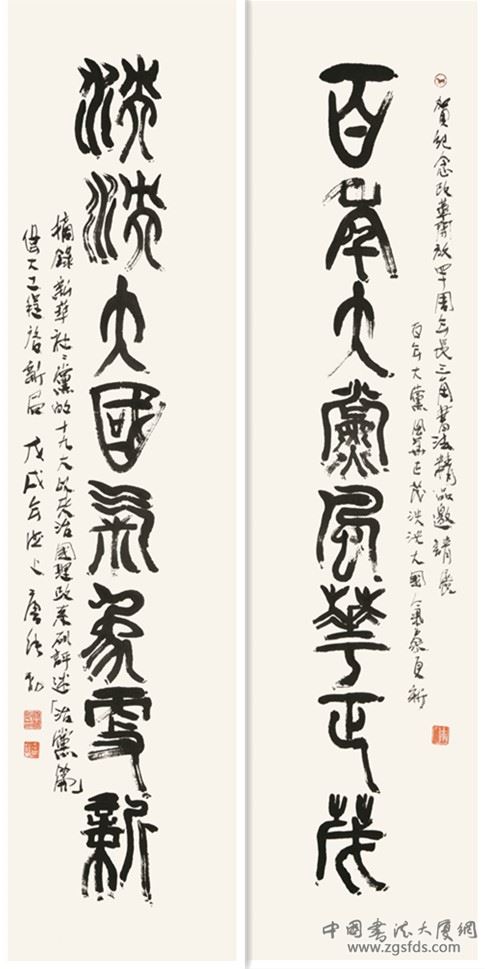 賀紀念改革開放四十周年長三角書法精品邀請展
百年大黨風華正茂泱泱大國氣象更新
百年大黨風華正茂
泱泱大國氣象更新
摘錄新華社黨的十九大以來治國理政系列評述「治黨篇」
偉大工程啓新局 戊戌年
中國書法大廈網
www.zgsfds.com